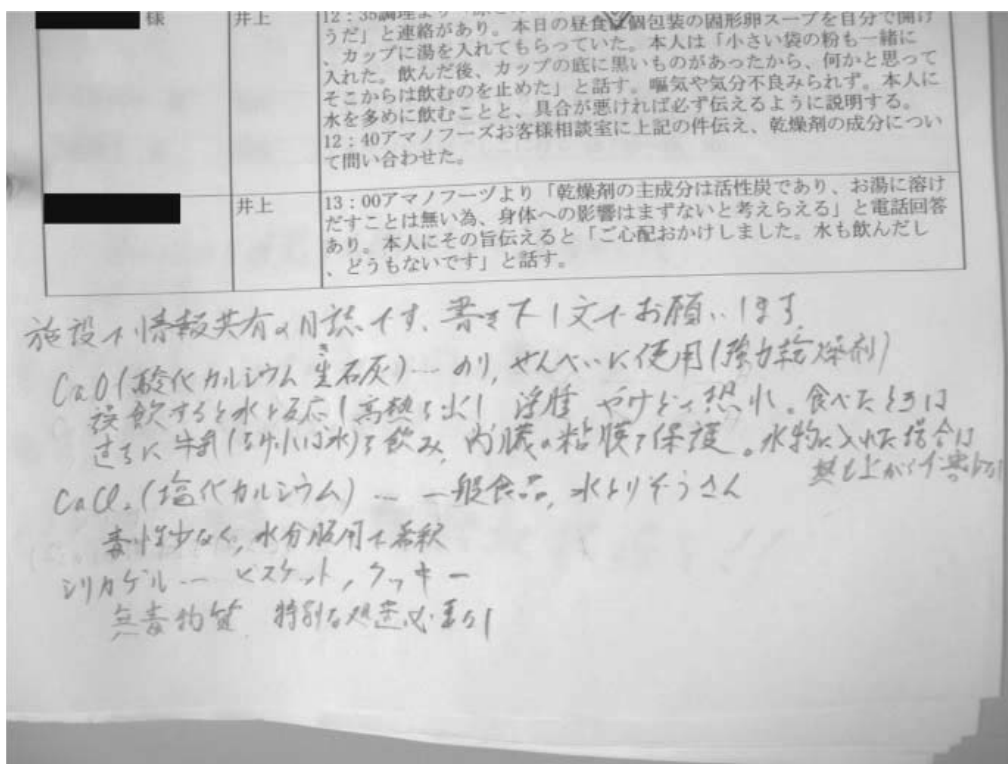 様 井上
12:35調理より
うだ」と連絡があり。本日の昼食は個包装の固形卵スープを自分で開け
、カップに湯を入れてもらっていた。本人は「小さい袋の粉も一緒に
入れた。飲んだ後、カップの底に黒いものがあったから、何かと思って
そこからは飲むのを止めた」と話す。嘔気や気分不良みられず。本人に
水を多めに飲むことと、具合が悪ければ必ず伝えるように説明する。
12:40アマノフーズお客様相談室に上記の件伝え、乾燥剤の成分につい
て問い合わせた。
井上
13:00アマノフーヅより「乾燥剤の主成分は活性炭であり、お湯に溶け
だすことは無い為、身体への影響はまずないと考えらえる」と電話回答
あり。本人にその旨伝えると「ご心配おかけしました。水も飲んだし
、どうもないです」と話す。
施設で情報共有の日誌です、書き下し文でお願いします
CaO(酸化カルシウム 生石灰)… のり、せんべいに使用(強力乾燥剤)
誤飲すると水と反応し高熱を出し 浮腫 やけどの恐れ。食べたときは
直ちに牛乳(なければ水)を飲み、内臓の粘膜を保護。水物に入れた場合は
CaCl₂(塩化カルシウム)… 一般食品、水とりぞうさん
毒性少なく、水分服用で希釈
シリカゲル… ビスケット、クッキー
無毒物質 特別な処置必要なし